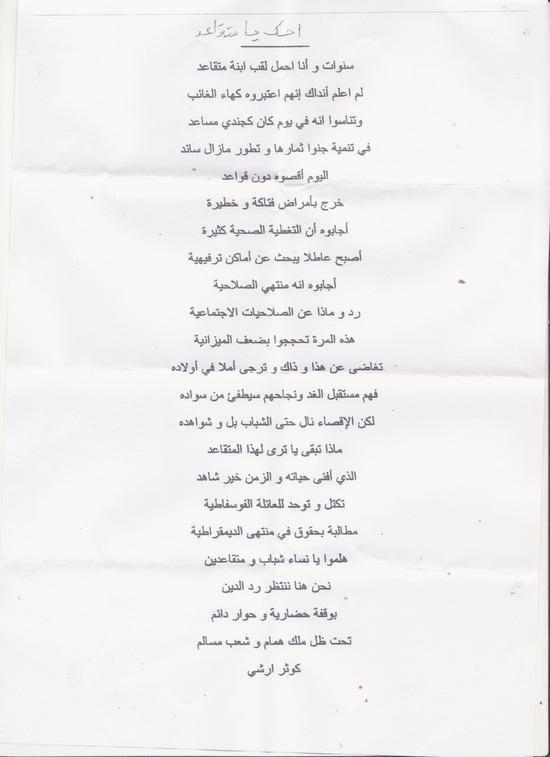 احك يا متقاعد
سنوات و أنا احمل لقب ابنة متقاعد
لم اعلم أنداك إنهم اعتبروه كهاء الغائب
وتناسوا انه في يوم كان كجندي مساعد
في تنمية جنوا ثمارها و تطور مازال سائد
اليوم أقصوه دون قواعد
خرج بأمراض فتاكة و خطيرة
أجابوه أن التغطية الصحية كثيرة
أصبح عاطلا يبحث عن أماكن ترفيهية
أجابوه انه منتهي الصلاحية
رد و ماذا عن الصلاحيات الاجتماعية
هذه المرة تحججوا بضعف الميزانية
تغاضى عن هذا و ذاك و ترجى أملا في أولاده
فهم مستقبل الغد ونجاحهم سيطفئ من سواده
لكن الإقصاء نال حتى الشباب بل و شواهده
ماذا تبقى يا ترى لهذا المتقاعد
الذي أفنى حياته و الزمن خير شاهد
تكتل و توحد للعائلة الفوسفاطية
مطالبة بحقوق في منتهى الديمقراطية
هلموا يا نساء شباب و متقاعدين
نحن هنا ننتظر رد الدين
بوقفة حضارية و حوار دائم
تحت ظل ملك همام و شعب مسالم
كوثر ارشي